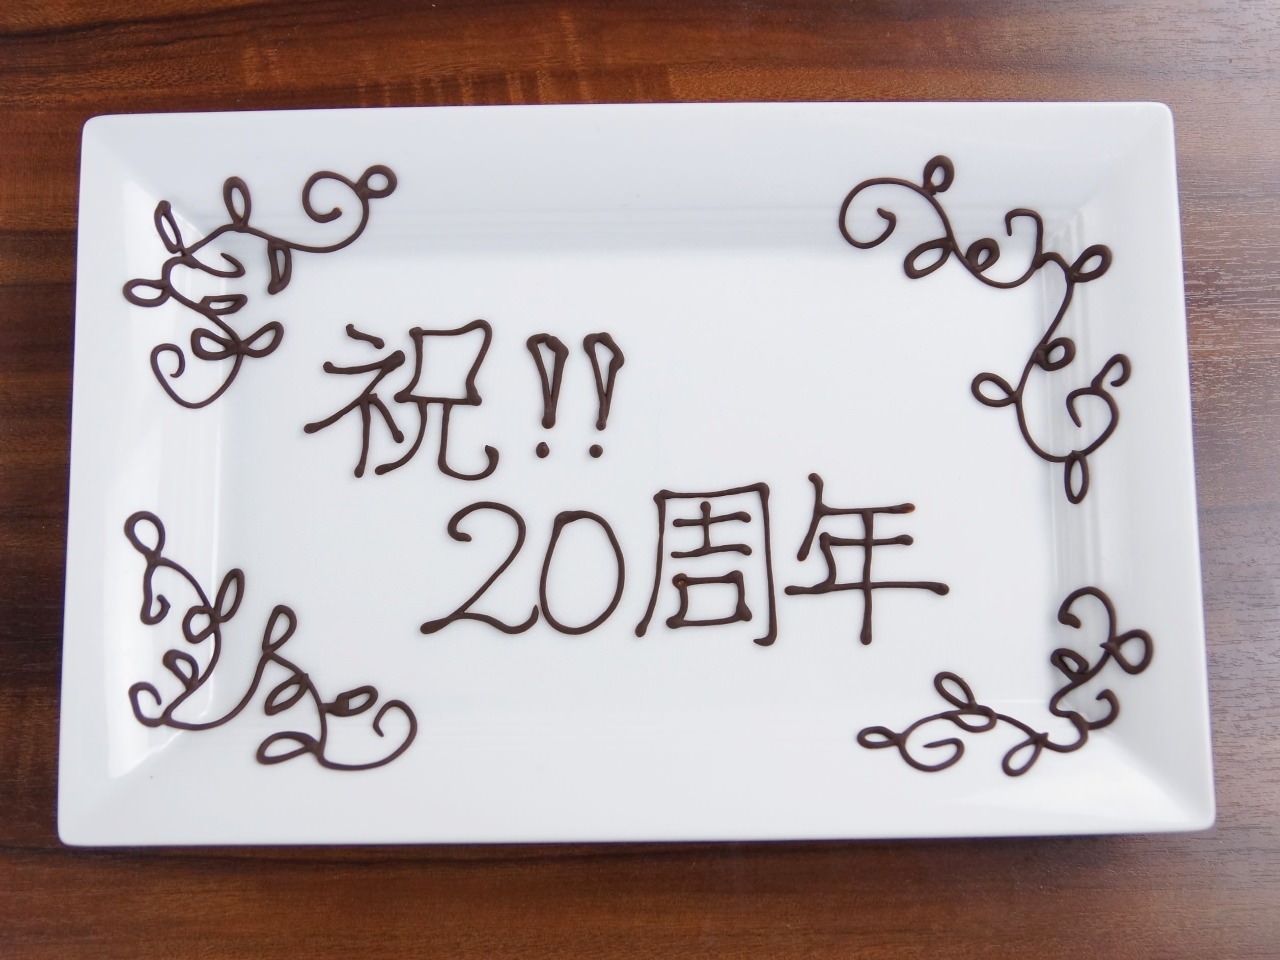 祝!!
20周年